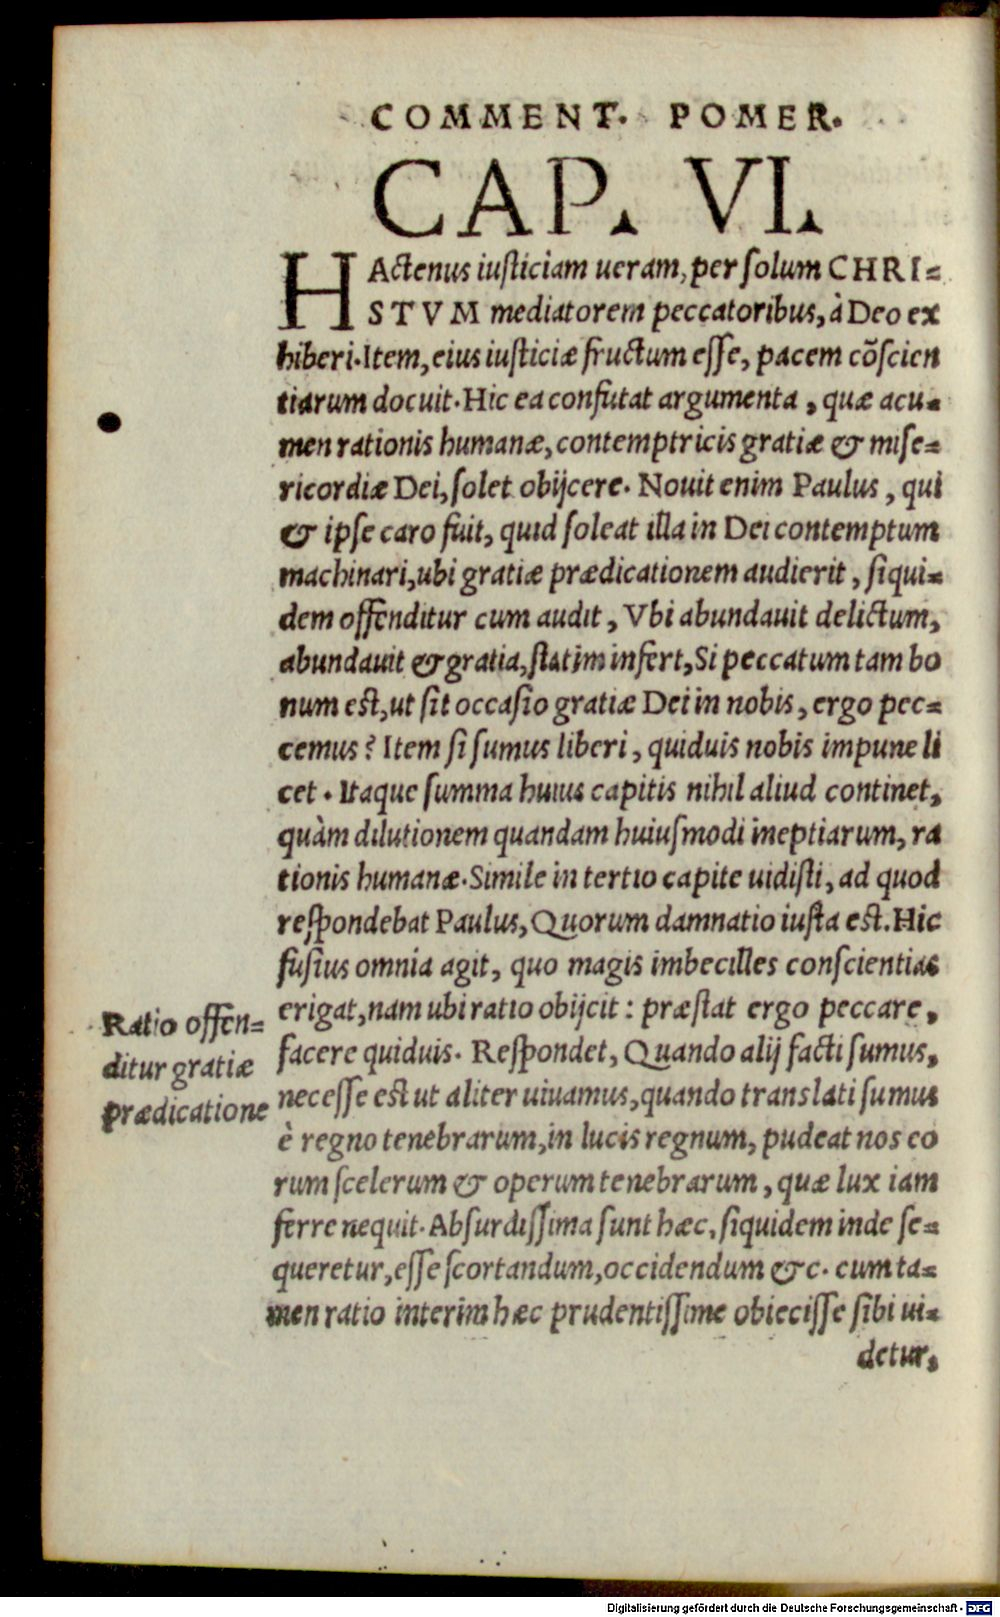 COMMENT. POMER.
CAP. VI.
HActenus iusticiam ueram, per solum CHRI=
STVM mediatorem peccatoribus, à Deo ex
hiberi. Item, eius iusticiæ fructum esse, pacem cōscien
tiarum docuit. Hic ea confutat argumenta, quæ acu=
men rationis humanæ, contemptricis gratiæ & mise=
ricordiæ Dei, solet obijcere. Nouit enim Paulus, qui
& ipse caro fuit, quid soleat illa in Dei contemptum
machinari, ubi gratiæ prædicationem audierit, siqui=
dem offenditur cum audit, Vbi abundauit delictum,
abundauit & gratia, statim infert, Si peccatum tam bo
num est, ut sit occasio gratiæ Dei in nobis, ergo pec=
cemus? Item si sumus liberi, quiduis nobis impune li
cet. Itaque summa huius capitis nihil aliud continet,
quàm dilutionem quandam huiusmodi ineptiarum, ra
tionis humanæ. Simile in tertio capite uidisti, ad quod
respondebat Paulus, Quorum damnatio iusta est. Hic
fusius omnia agit, quo magis imbecilles conscientias
erigat, nam ubi ratio obijcit: præstat ergo peccare,
facere quiduis. Respondet, Quando alij facti sumus,
necesse est ut aliter uiuamus, quando translati sumus
è regno tenebrarum, in lucis regnum, pudeat nos eo
rum scelerum & operum tenebrarum, quæ lux iam
ferre nequit. Absurdissima sunt hæc, siquidem inde se=
queretur, esse scortandum, occidendum &c. cum ta=
men ratio interim hæc prudentissime obiecisse sibi ui=
detur,
Ratio offen=
ditur gratiæ
prædicatione
Digitalisierung gefördert durch die Deutsche Forschungsgemeinschaft - DFG